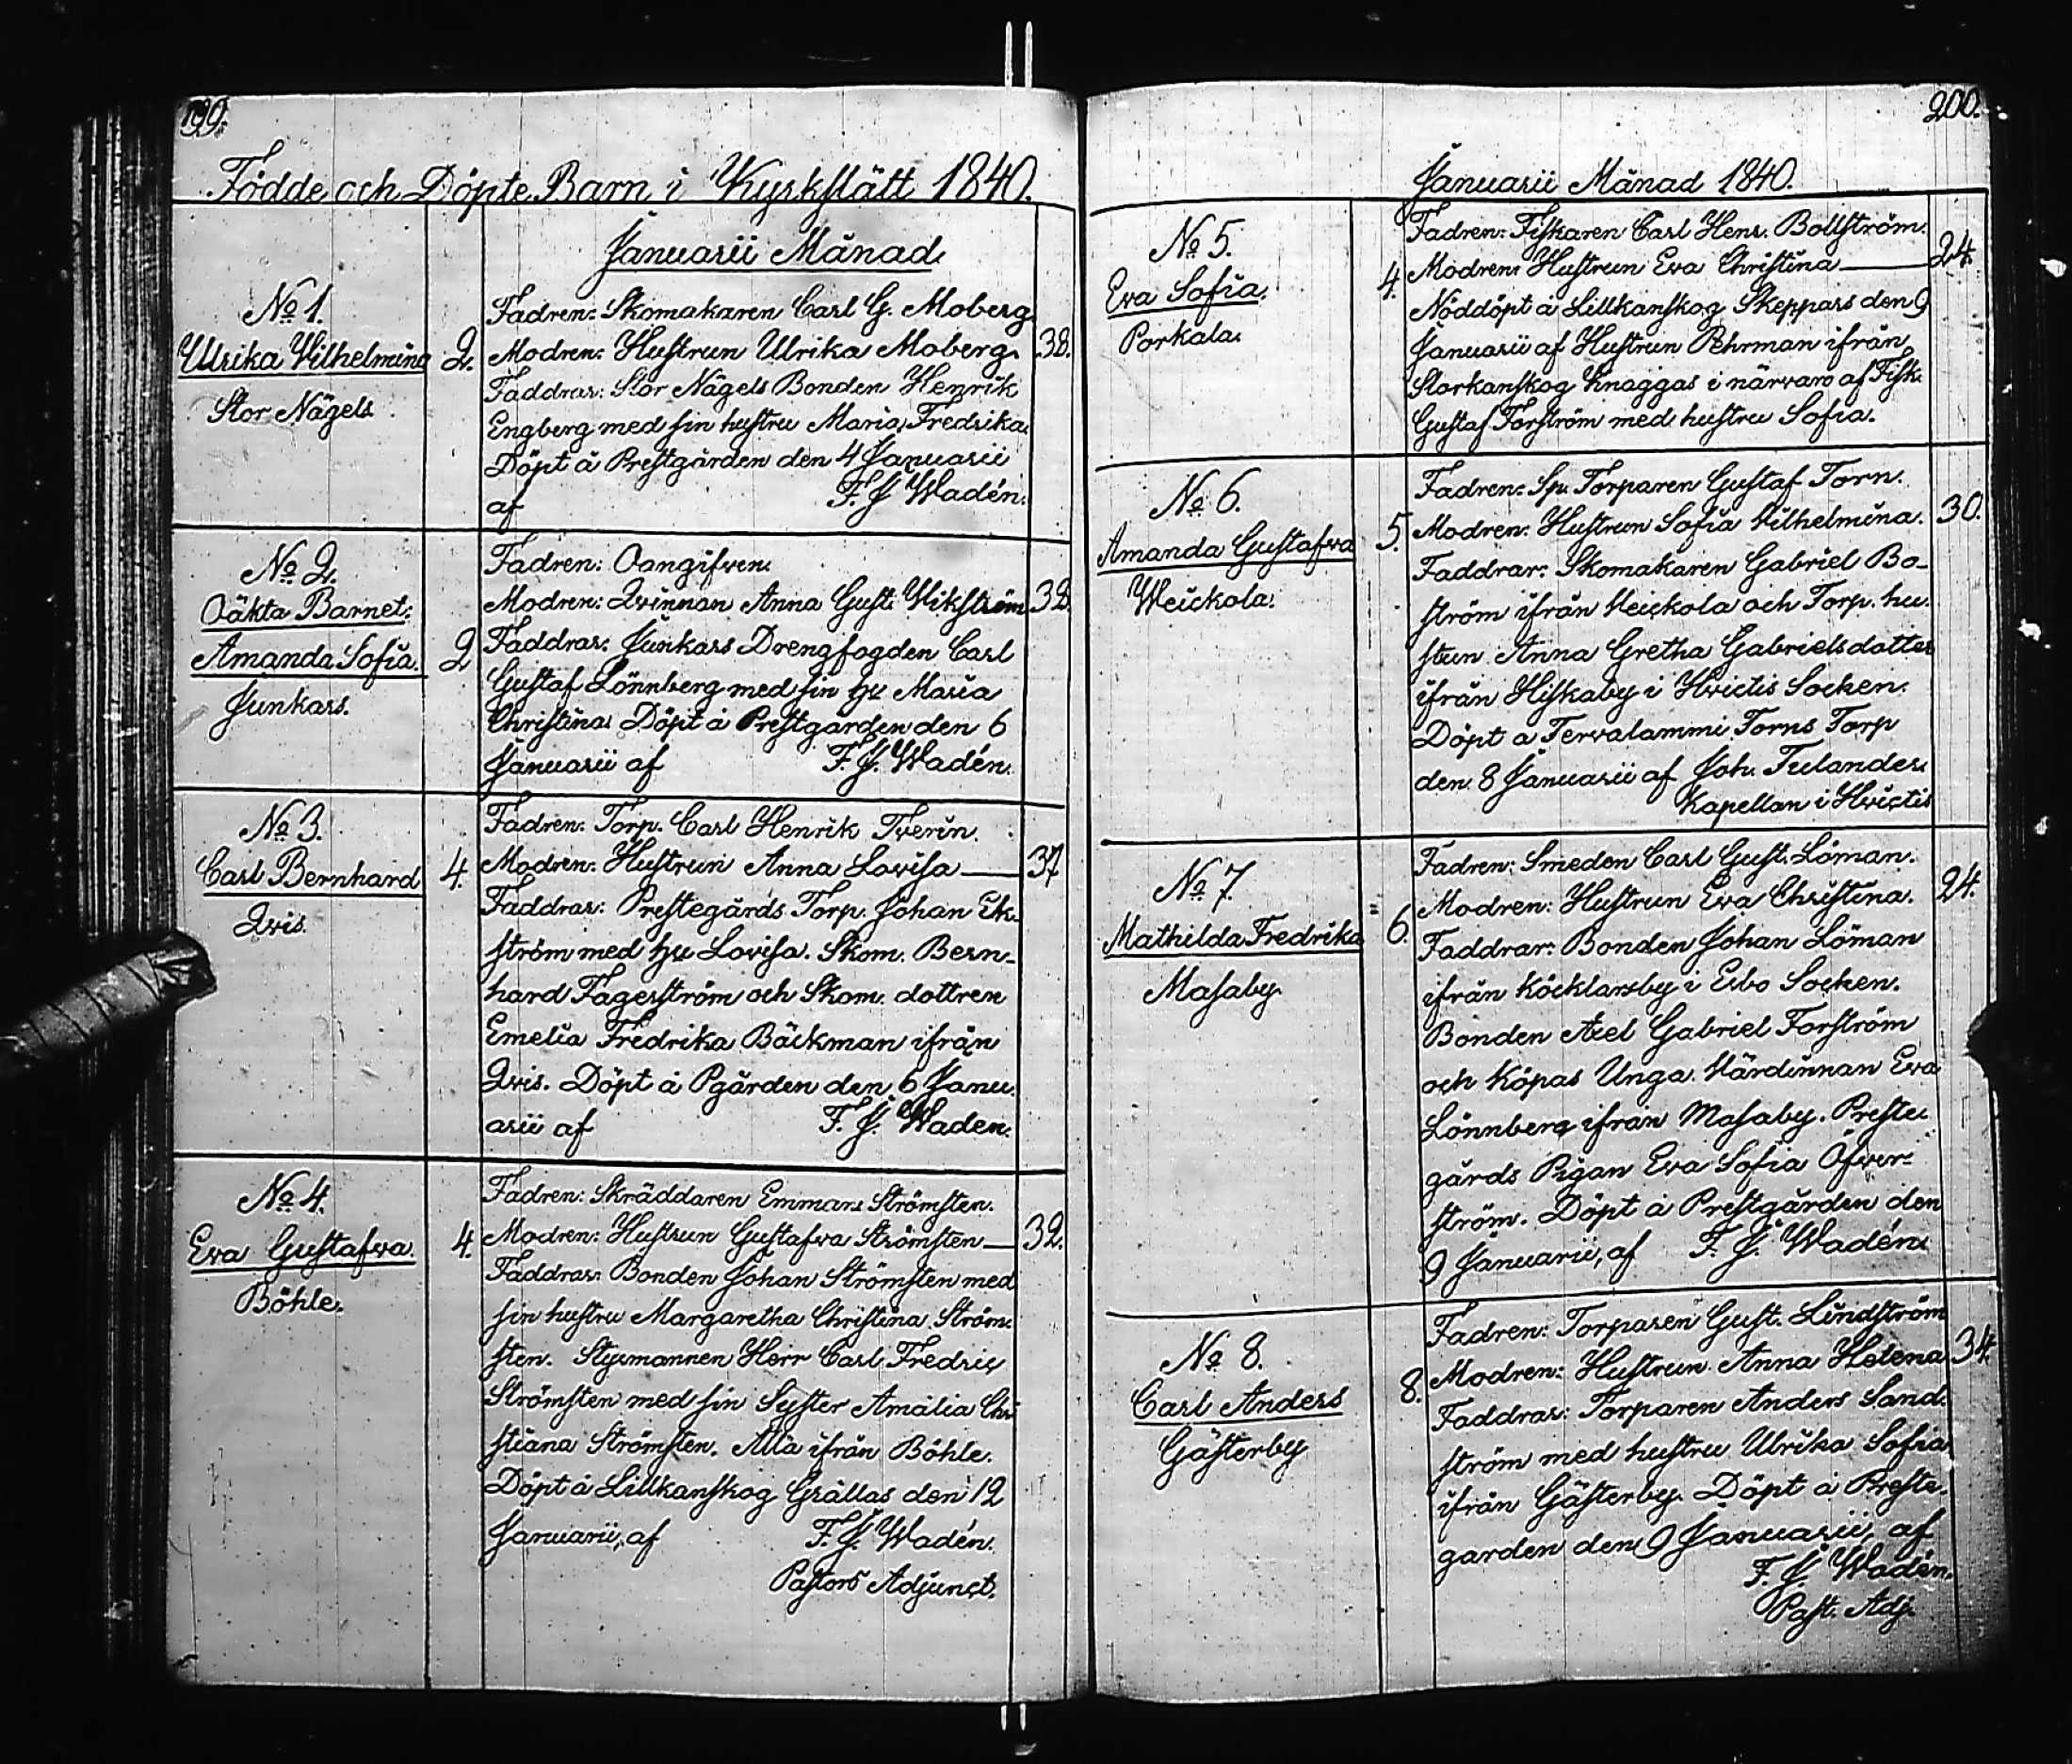 199.
Födde och Döpte Barn i Kyrkslätt 1840.
Januarii Månad.
No 1.
Ulrika Wilhelmina
Stor Nägels
2.
Fadren: Skomakaren Carl G. Moberg
Modren: Hustrun Ulrika Moberg.
38.
Faddrar: Stor Nägels Bonden Henrik
Engberg med sin hustru Maria Fredrika.
Döpt å Prestgården den 4 Januarii
af F. J. Wadén.
No 2.
Oäkta Barnet:
Amanda Sofia.
Junkars.
2
Fadren: Oangifven.
Modren: Qvinnan Anna Gust. Wikström
32.
Faddrar: Junkars Drengfogden Carl
Gustaf Lönnberg med sin hu Maria
Christina. Döpt å Prestgården den 6
Januarii af F. J. Wadén.
No 3.
Carl Bernhard
Qvis.
4.
Fadren: Torp. Carl Henrik Tverin.
Modren: Hustrun Anna Lovisa
37
Faddrar: Prestegårds Torp. Johan Ek-
ström med hu Lovisa. Skom. Bern-
hard Fagerström och Skom. dottren
Emelia Fredrika Bäckman ifrån
Qvis. Döpt å Pgården den 6 Janu-
arii af F. J. Waden.
No 4.
Eva Gustafva.
Böhle.
4.
Fadren: Skräddaren Emman. Strömsten.
Modren: Hustrun Gustafva Strömsten
32.
Faddrar: Bonden Johan Strömsten med
sin hustru Margaretha Christina Ström-
sten. Styrmannen Herr Carl Fredric
Strömsten med sin Syster Amalia Chri
stiana Strömsten. Alla ifrån Böhle.
Döpt å Lillkanskog Grällas den 12
Januarii, af F. J. Wadén.
Pastors Adjunct.
200.
Januarii Månad 1840.
No 5.
Eva Sofia.
Porkala.
4.
Fadren: Fiskaren Carl Henr. Bollström.
Modren: Hustrun Eva Christina
24.
Nöddöpt å Lillkanskog Skeppars den 9
Januarii af Hustrun Pehrman ifrån
Storkanskog Knaggas i närvaro af Fisk.
Gustaf Forström med hustru Sofia.
No 6.
Amanda Gustafva
Weickola.
5.
Fadren: Sp. Torparen Gustaf Torn.
Modren: Hustrun Sofia Vilhelmina.
30.
Faddrar: Skomakaren Gabriel Bo-
ström ifrån Veickola och Torp. hu-
strun Anna Gretha Gabrielsdotter
ifrån Hiskaby i Hvictis Socken.
Döpt a Tervalammi Torns Torp
den 8 Januarii af Joh. Tulander.
Kapellan i Hvictis
No 7.
Mathilda Fredrika
Masaby
6.
Fadren: Smeden Carl Gust. Löman.
Modren: Hustrun Eva Christina.
24.
Faddrar: Bonden Johan Löman
ifrån Köcklarsby i Esbo Socken.
Bonden Axel Gabriel Forström
och Köpas Unga Värdinnan Eva
Lönnberg ifrån Masaby. Preste-
gårds Pigan Eva Sofia Öfver-
ström. Döpt å Prestgården den
9 Januarii, af F. J. Wadén.
No 8.
Carl Anders
Gästerby
8.
Fadren: Torparen Gust. Lindström
Modren: Hustrun Anna Helena
34.
Faddrar: Torparen Anders Sand-
ström med hustru Ulrika Sofia
ifrån Gästerby. Döpt å Preste-
garden den 9 Januarii, af
F. J. Wadén.
Past. Adj.